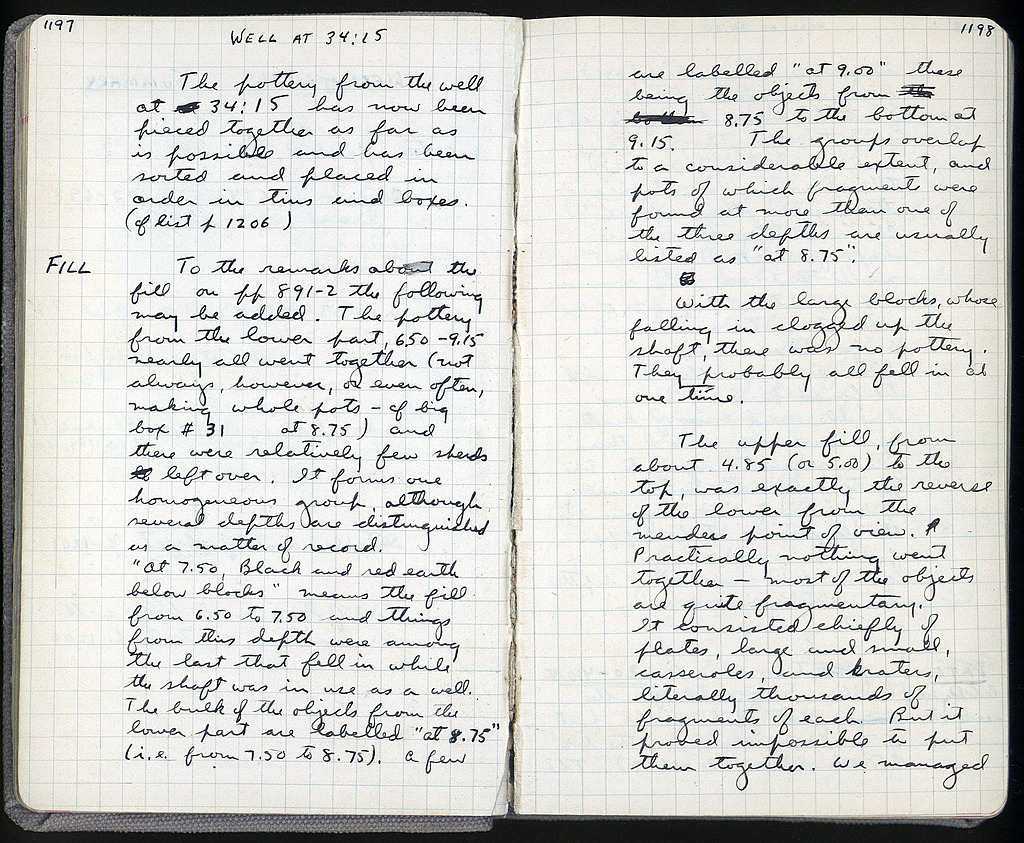 1197
WELL AT 34:15
The pottery from the well
at 34:15 has now been
pieced together as far as
is possible and has been
sorted and placed in
order in tins and boxes.
(cf list p 1206)
FILL
To the remarks about the
fill on pp 891-2 the following
may be added. The pottery
from the lower part, 6.50 - 9.15
nearly all went together (not
always, however, or even often,
making whole pots - cf big
box # 31 at 8.75) and
there were relatively few sherds
left over. It forms one
homogeneous group, although
several depths are distinguished
as a matter of record.
"at 7.50, Black and red earth
below blocks" means the fill
from 6.50 to 7.50 and things
from this depth were among
the last that fell in while
the shaft was in use as a well.
The bulk of the objects from the
lower part are labelled "at 8.75"
(i.e. from 7.50 to 8.75). A few
1198
are labelled "at 9.00" these
being the objects from
8.75 to the bottom at
9.15. The groups overlap
to a considerable extent, and
pots of which fragments were
found at more than one of
the three depths are usually
listed as "at 8.75".
With the large blocks, whose
falling in clogged up the
shaft, there was no pottery.
They probably all fell in at
one time.
The upper fill, from
about 4.85 (or 5.00) to the
top, was exactly the reverse
of the lower from the
menders point of view.
Practically nothing went
together - most of the objects
are quite fragmentary.
It consisted chiefly of
plates, large and small,
casseroles, and kraters,
literally thousands of
fragments of each. But it
proved impossible to put
them together. We managed